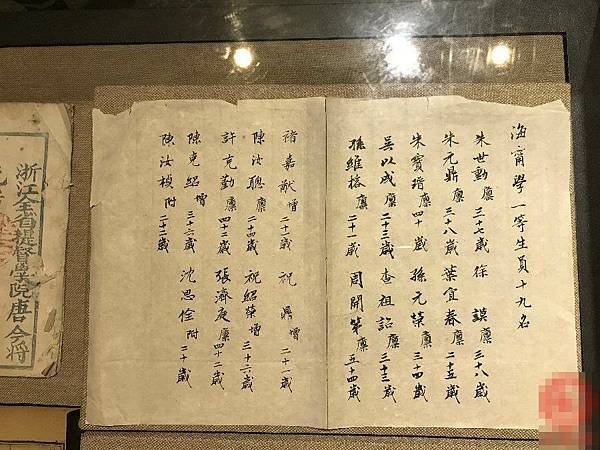 海甯學一等生員十九名
朱世勳廩三十七歲 徐謨廩三十八歲
朱元鼎廩三十八歲 葉宜春廩二十五歲
朱寶瑨廩四十歲 孫元榮廩三十四歲
吳以成廩二十三歲 查祖詒廩三十三歲
孫維榕廩二十一歲 周開第廩五十四歲
褚嘉猷增二十三歲 祝鼎增二十一歲
陳汝聰廩二十四歲 祝紹棻增三十六歲
許克勤廩四十二歲 張濟庚廩四十二歲
陳克紹增三十六歲 沈思佺附二十歲
陳汝楨附二十二歲
浙江全省提督學院唐 今將